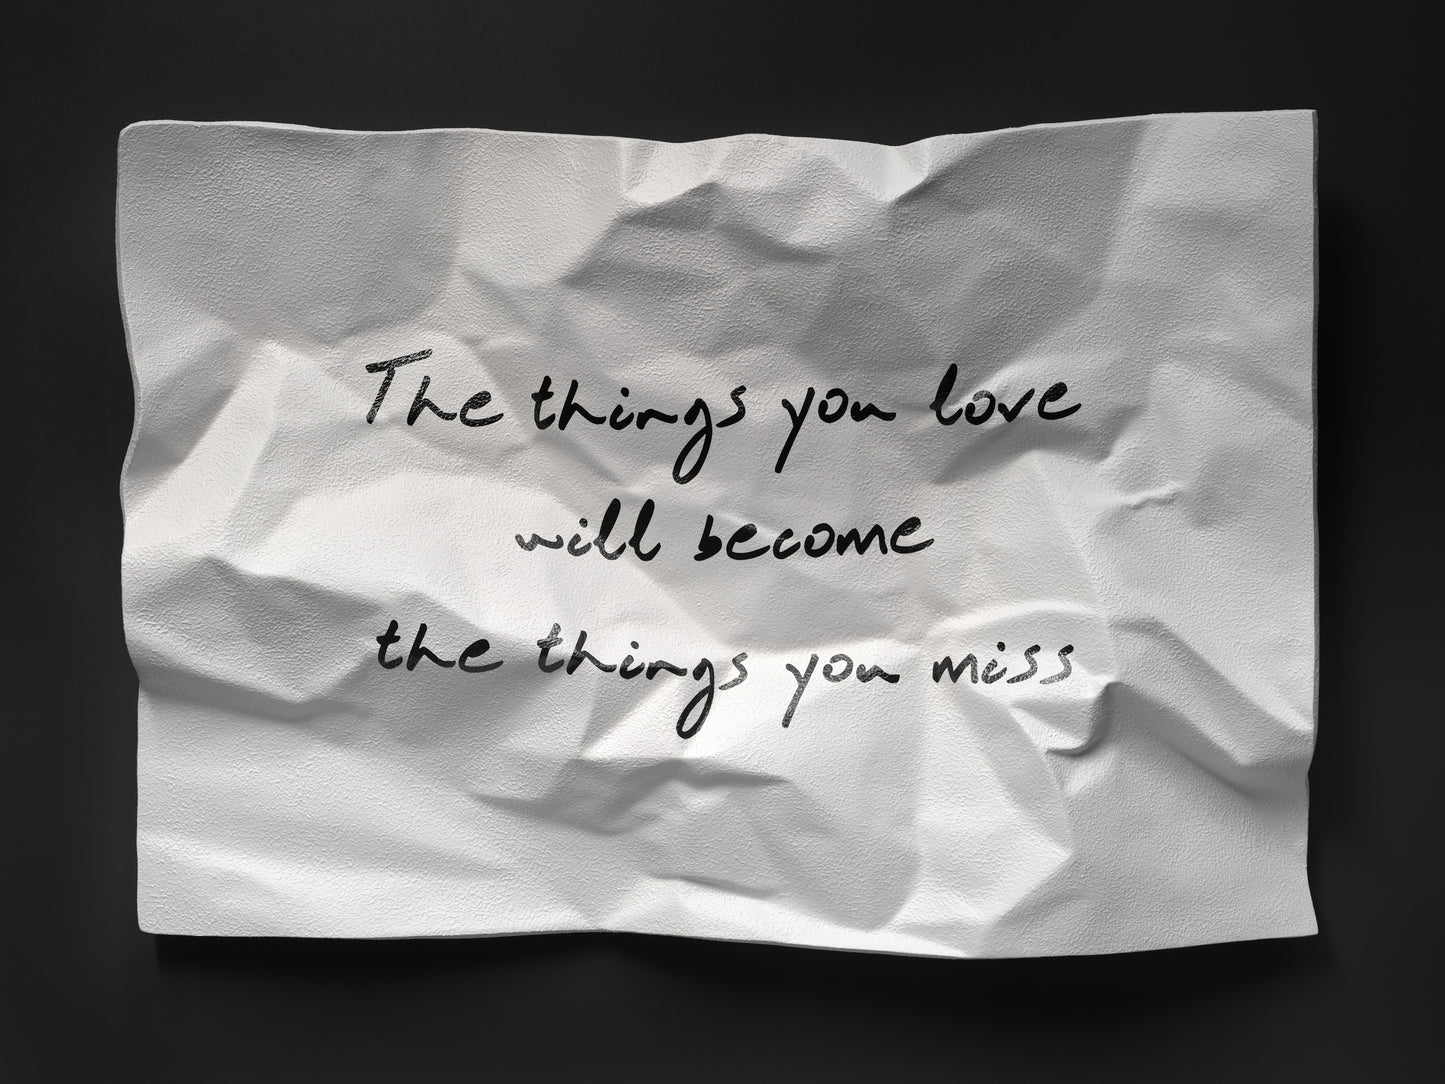 The things you love
will become
the things you miss